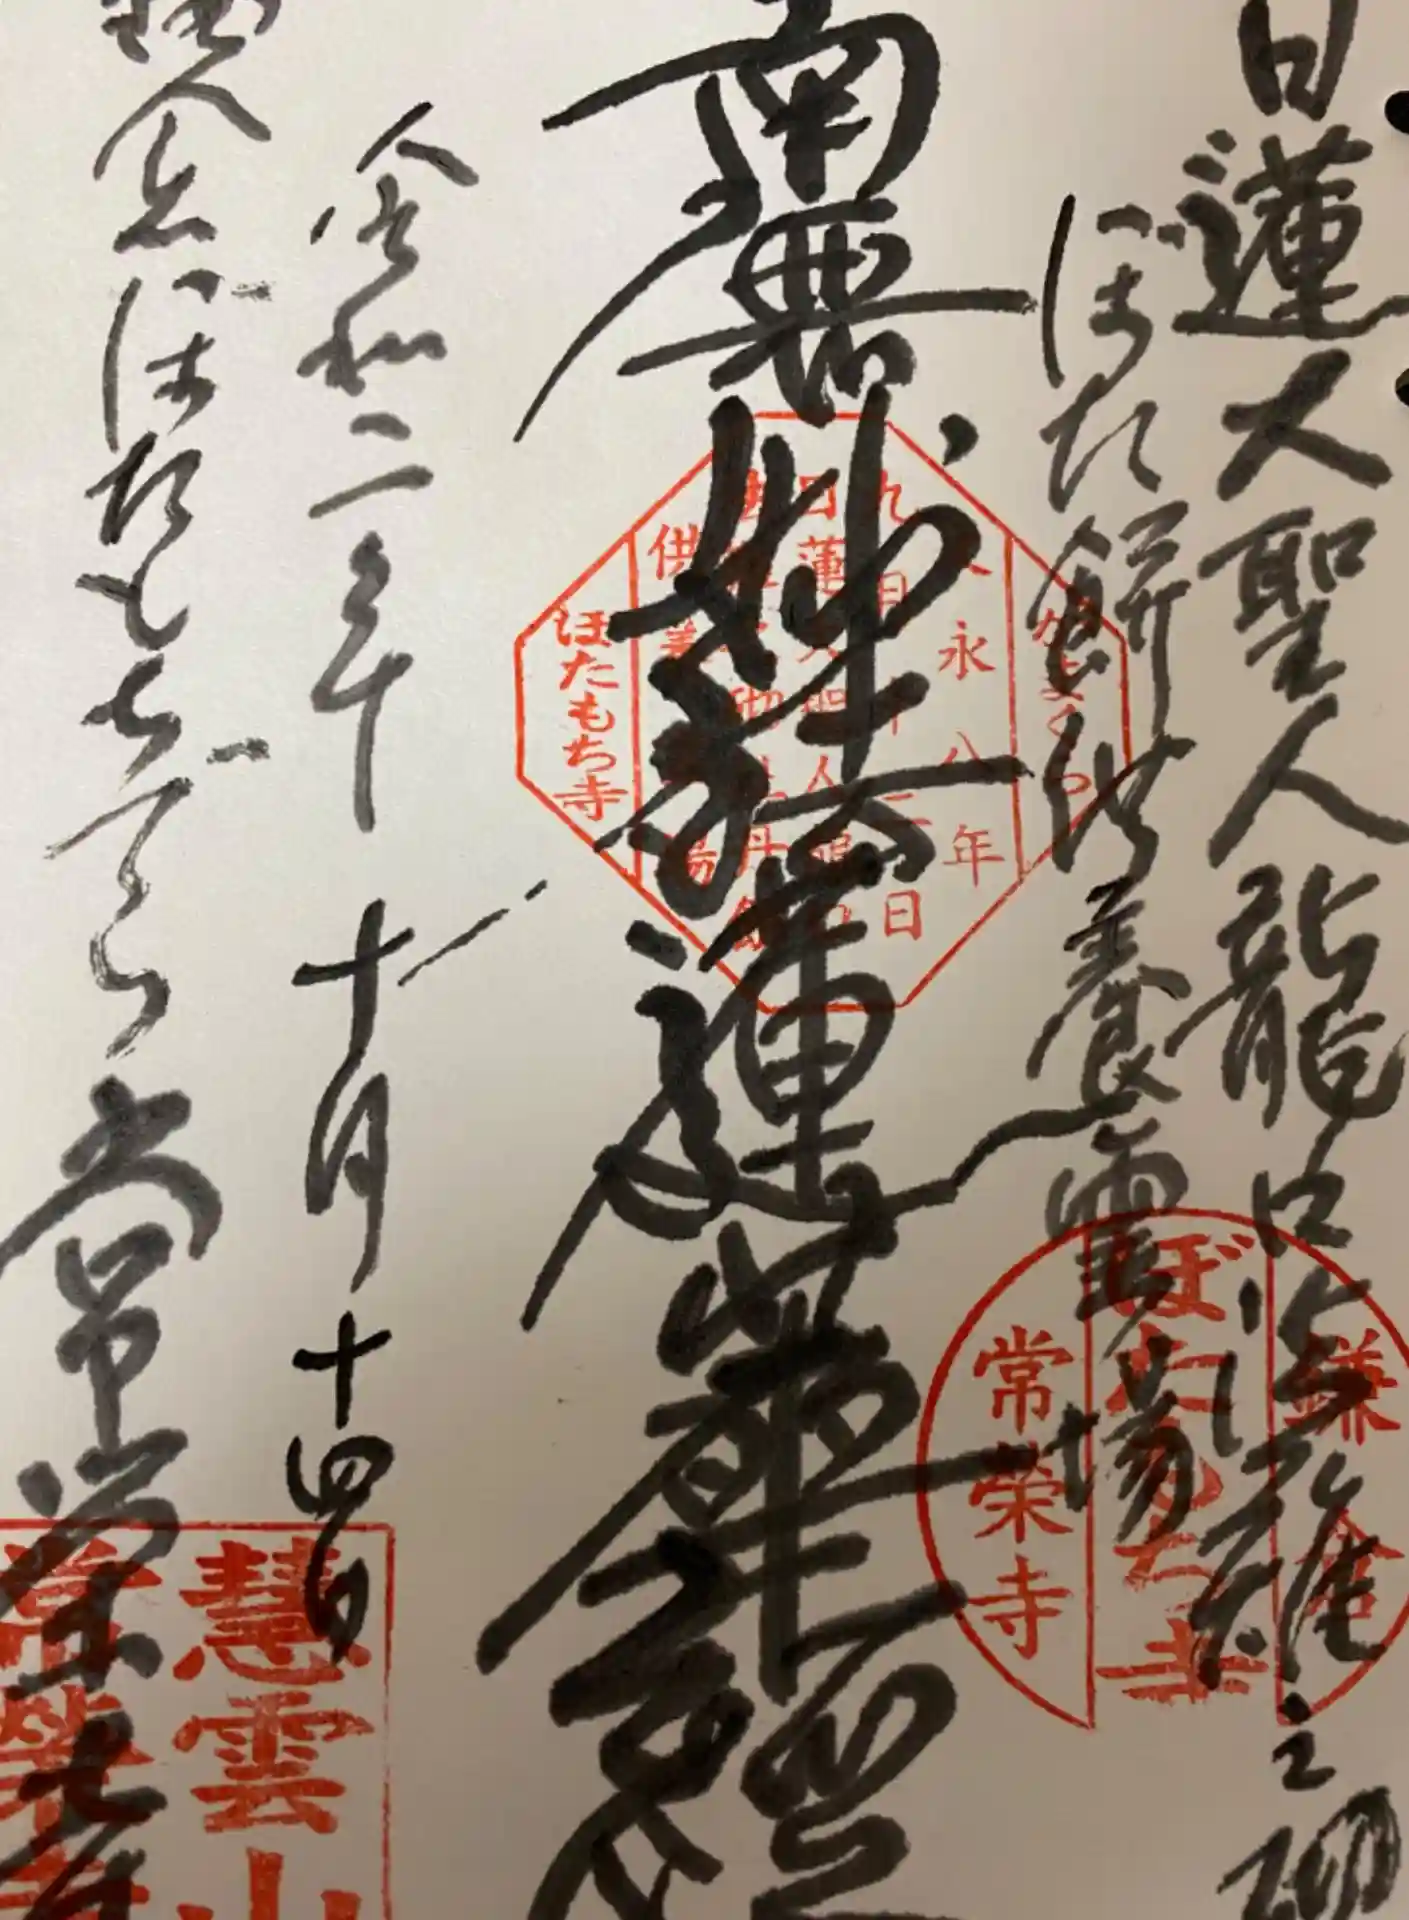 日蓮大聖人龍口法難之砌
ぼた餅供養霊場
南無妙法蓮華経
令和二年十月十四日
ぼたもちでら常栄寺
かまくら
文永八年
九月十二日
日蓮大聖人龍ノ口
供養
ぼたもち寺
鎌倉
ぼたもち寺
常榮寺
慧雲山
常榮寺